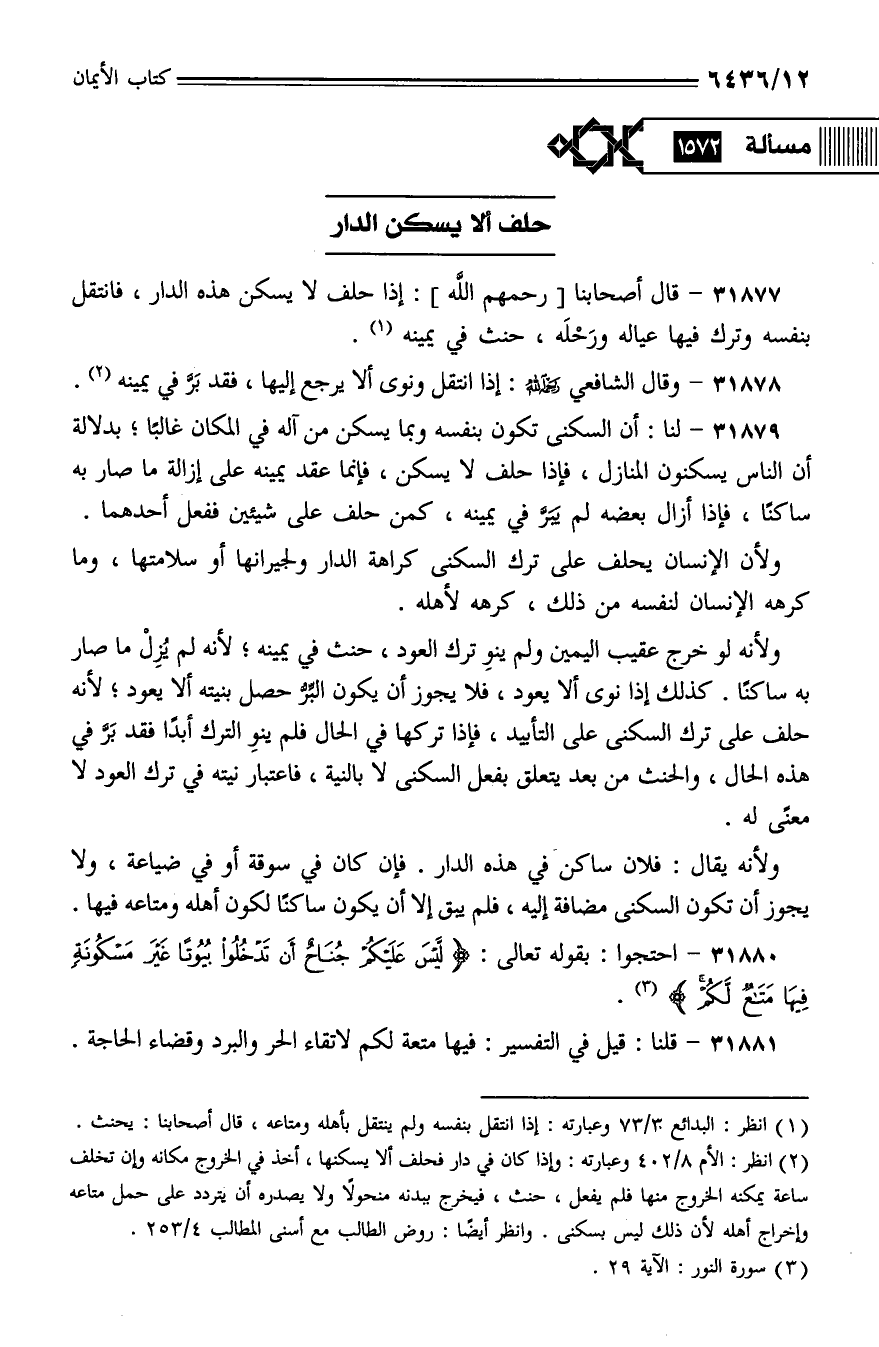 ٦٤٣٦/١٢ كتاب الأيمان
مسألة ١٥٧٢
حلف ألا يسكن الدار
٣١٨٧٧ - قال أصحابنا [ رحمهم اللَّه ] : إذا حلف لا يسكن هذه الدار ، فانتقل
بنفسه وترك فيها عياله ورَحْلَه ، حنث في يمينه (١) .
٣١٨٧٨ - وقال الشافعي رحمه الله : إذا انتقل ونوى ألا يرجع إليها ، فقد بَرَّ في يمينه (٢) .
٣١٨٧٩ - لنا : أن السكنى تكون بنفسه وبما يسكن من آله في المكان غالبًا ؛ بدلالة
أن الناس يسكنون المنازل ، فإذا حلف لا يسكن ، فإنما عقد يمينه على إزالة ما صار به
ساكنًا ، فإذا أزال بعضه لم يَبَرَّ في يمينه ، كمن حلف على شيئين ففعل أحدهما .
ولأن الإنسان يحلف على ترك السكنى كراهة الدار ولجيرانها أو سلامتها ، وما
كرهه الإنسان لنفسه من ذلك ، كرهه لأهله .
ولأنه لو خرج عقيب اليمين ولم ينوِ ترك العود ، حنث في يمينه ؛ لأنه لم يُزِلْ ما صار
به ساكنًا . كذلك إذا نوى ألا يعود ، فلا يجوز أن يكون البِّرُّ حصل بنيته ألا يعود ؛ لأنه
حلف على ترك السكنى على التأبيد ، فإذا تركها في الحال فلم ينوِ الترك أبدًا فقد بَرَّ في
هذه الحال ، والحنث من بعد يتعلق بفعل السكنى لا بالنية ، فاعتبار نيته في ترك العود لا
معنًى له .
ولأنه يقال : فلان ساكن في هذه الدار . فإن كان في سوقة أو في ضياعة ، ولا
يجوز أن تكون السكنى مضافة إليه ، فلم يبق إلا أن يكون ساكنًا لكون أهله ومتاعه فيها .
٣١٨٨٠ - احتجوا : بقوله تعالى : ﴿ لَّيْسَ عَلَيْكُمْ جُنَاحٌ أَن تَدْخُلُوا۟ بُيُوتًا غَيْرَ مَسْكُونَةٍ
فِيهَا مَتَٰعٌ لَّكُمْ ۚ ﴾ (٣) .
٣١٨٨١ - قلنا : قيل في التفسير : فيها متعة لكم لاتقاء الحر والبرد وقضاء الحاجة .
(١) انظر : البدائع ٧٣/٣ وعبارته : إذا انتقل بنفسه ولم ينتقل بأهله ومتاعه ، قال أصحابنا : يحنث .
(٢) انظر : الأم ٤٠٢/٨ وعبارته : وإذا كان في دار فحلف ألا يسكنها ، أخذ في الخروج مكانه وإن تخلف
ساعة يمكنه الخروج منها فلم يفعل ، حنث ، فيخرج ببدنه منحولًا ولا يصدره أن يتردد على حمل متاعه
وإخراج أهله لأن ذلك ليس بسكنى . وانظر أيضًا : روض الطالب مع أسنى المطالب ٢٥٣/٤ .
(٣) سورة النور : الآية ٢٩ .